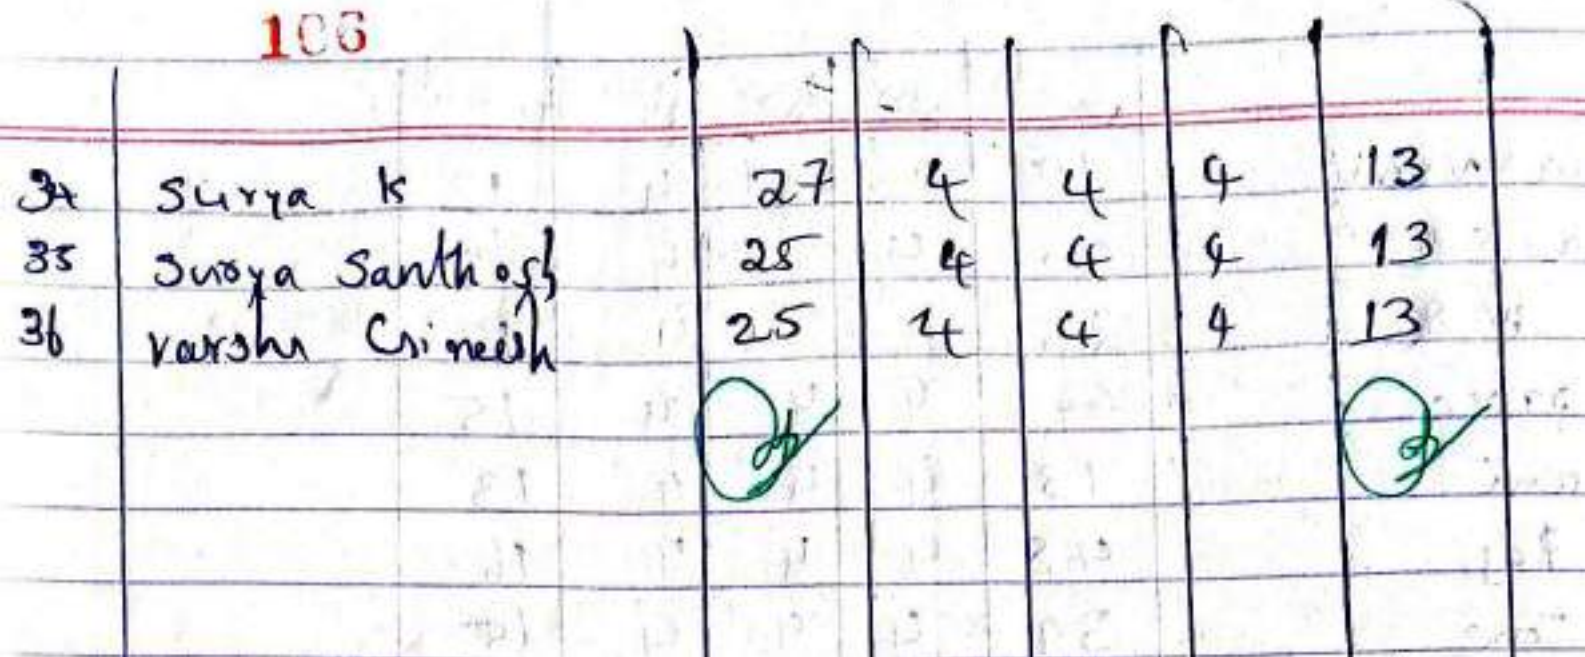 106
34 Surya K 27 4 4 4 13
35 Surya Santhosh 25 4 4 4 13
36 Varsha Gineesh 25 4 4 4 13